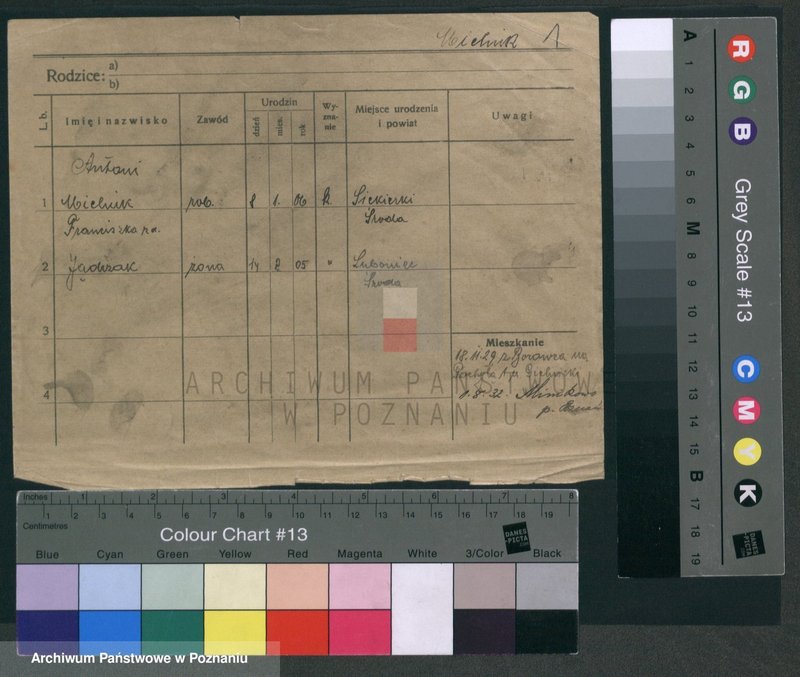 Mielnik 1
Rodzice: a)
b)
L. b. Imię i nazwisko Zawód Urodzin dzień mies. rok Wyznanie Miejsce urodzenia i powiat Uwagi
Antoni
1 Mielnik rob. 8 1. 06 k. Siekierki
Środa
Franciszka
2 żona 14 2 05 " Środa
3
Mieszkanie
18.11.29 z
4
1.8.32.
p.
ARCHIWUM PAŃSTWOWE
W POZNANIU
Inches 1 2 3 4 5 6 7 8
Centimetres 1 2 3 4 5 6 7 8 9 10 11 12 13 14 15 16 17 18 19
Colour Chart #13
DANES-PICTA.COM
Blue Cyan Green Yellow Red Magenta White 3/Color Black
Archiwum Państwowe w Poznaniu
R G B Grey Scale #13 C M Y K
A 1 2 3 4 5 6 M 8 9 10 11 12 13 14 15 B 17 18 19
DANES-PICTA.COM